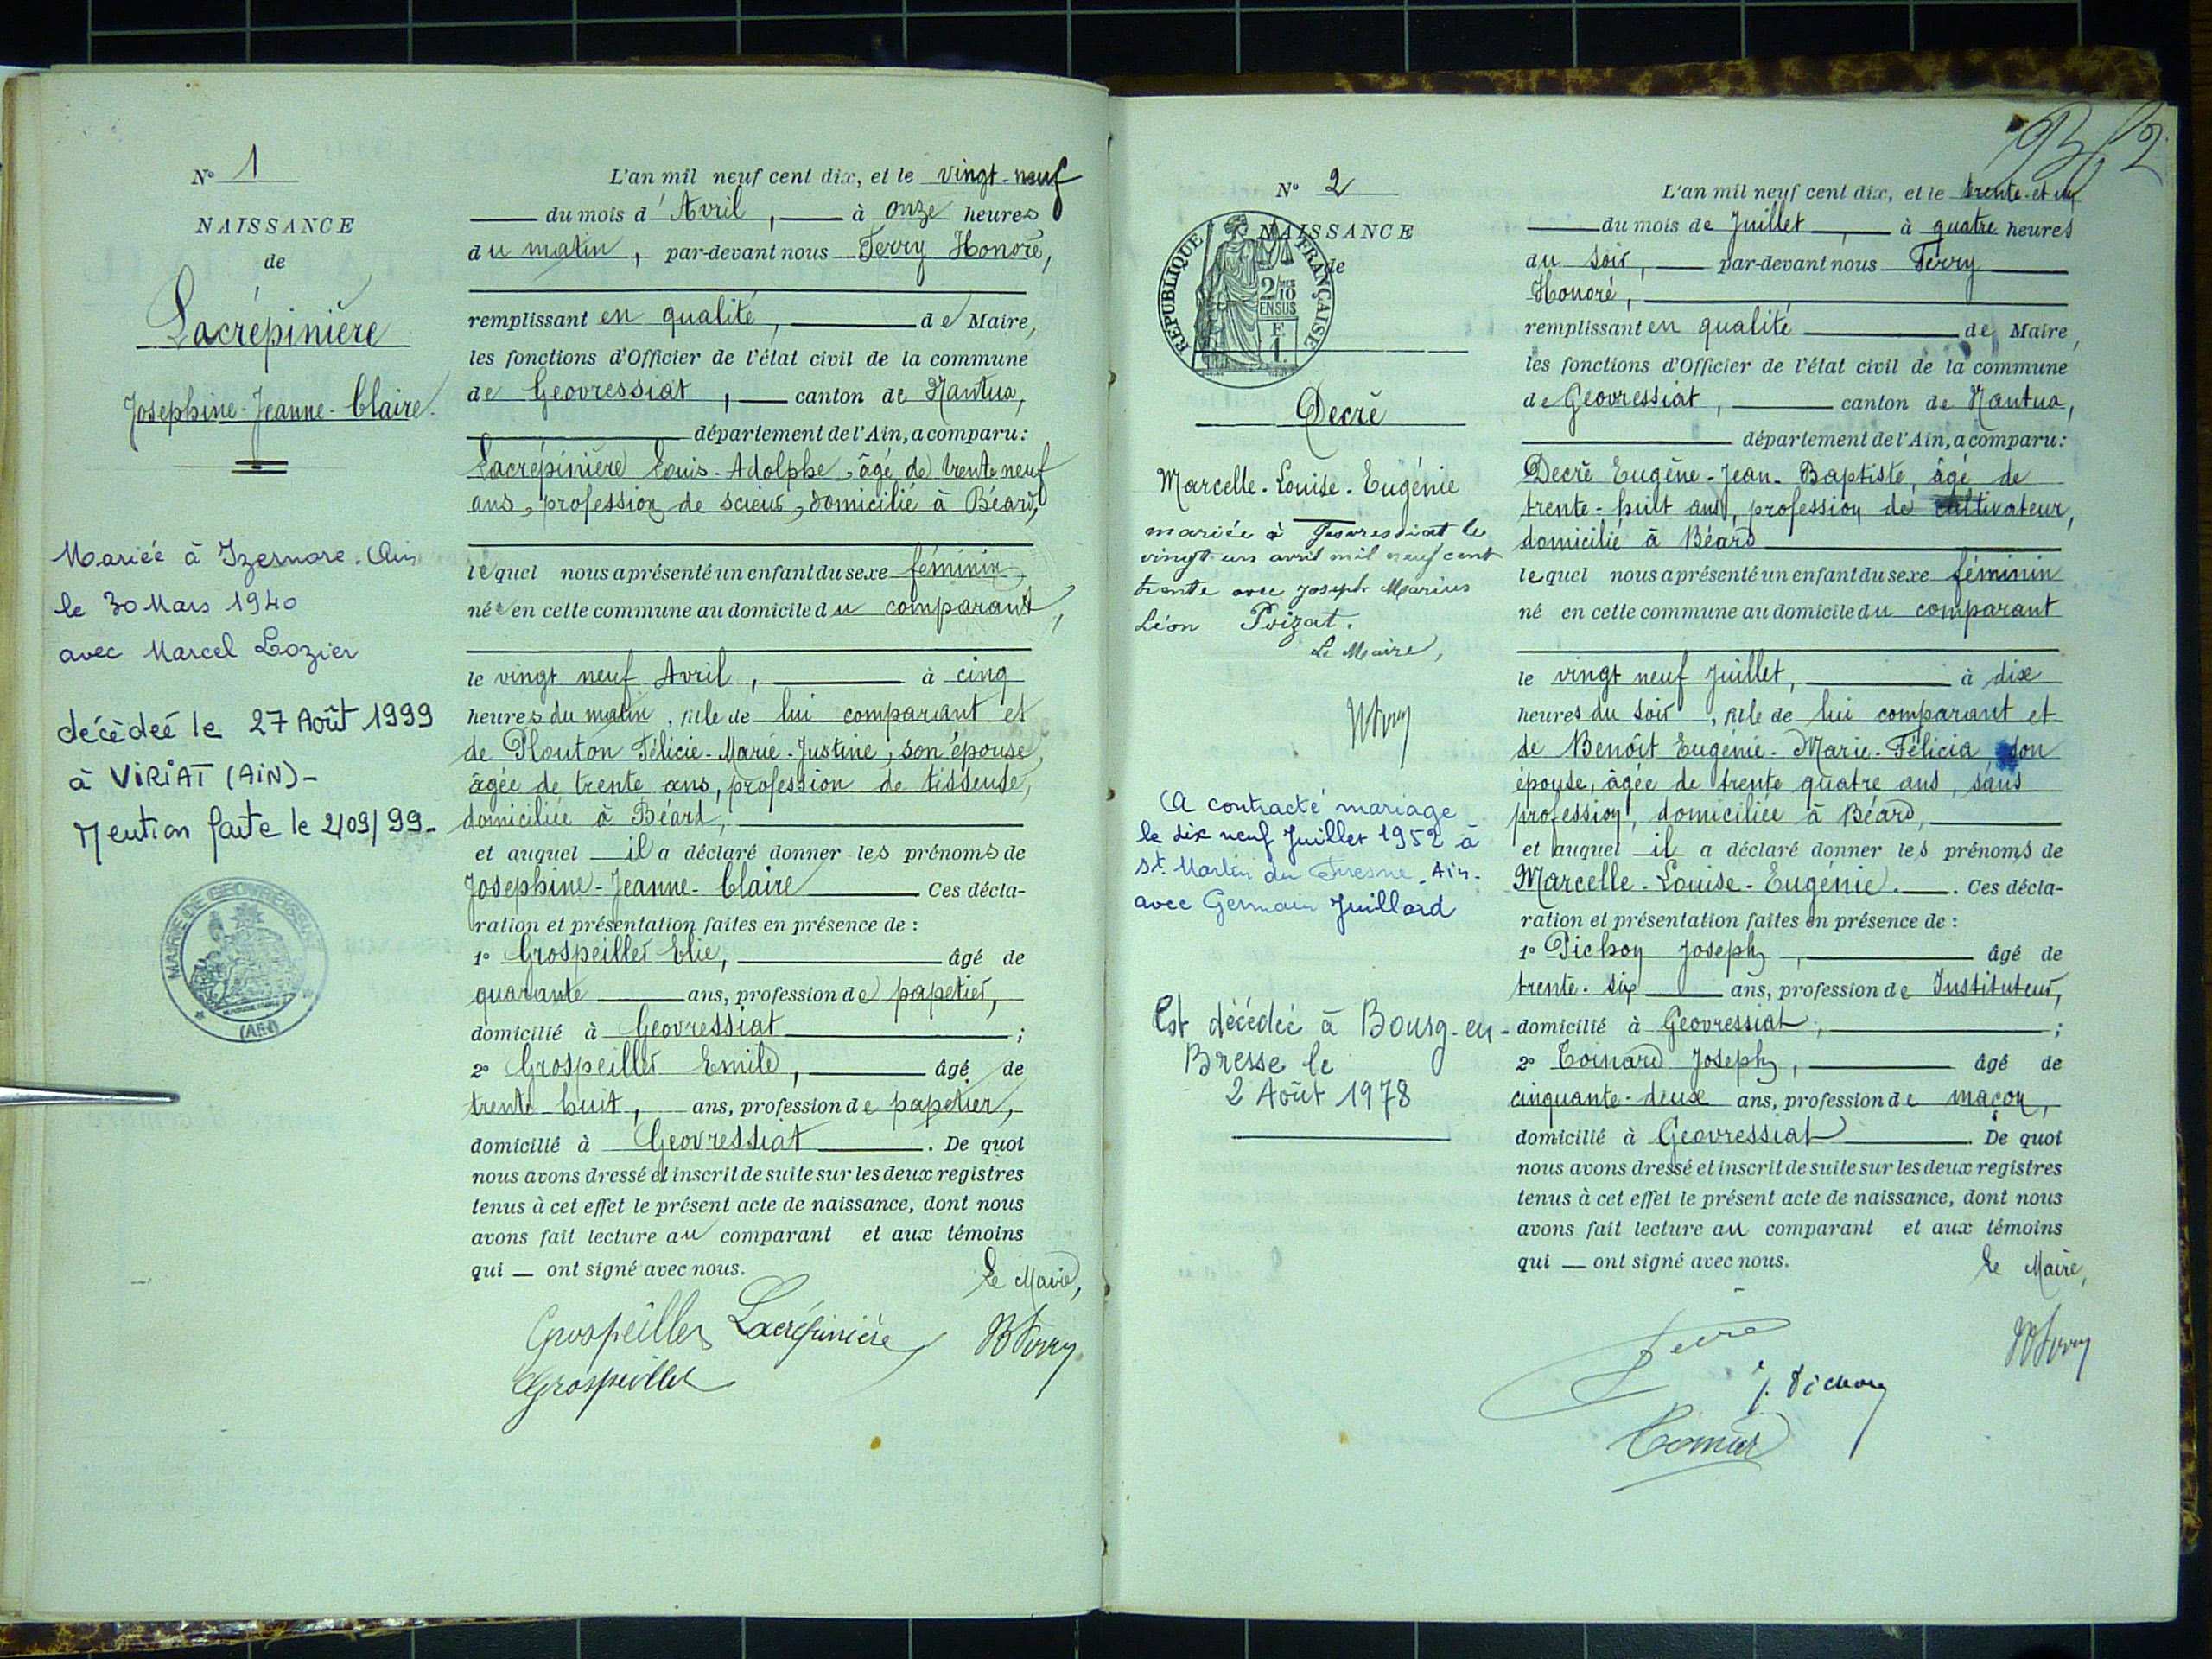 N° 1
NAISSANCE
de
Lacrépinière
Josephine-Jeanne-Claire.
Mariée à Izernore. Ain
le 30 Mars 1940
avec Marcel Lozier
décèdeé le 27 Août 1999
à VIRIAT (AIN)-
Mention faite le 2/09/99-
MAIRIE DE GEOVRESSIAT
(AIN)
L'an mil neuf cent dix, et le vingt-neuf
du mois d'Avril, à onze heures
du matin, par-devant nous Ferry Honoré,
remplissant en qualité, de Maire,
les fonctions d'Officier de l'état civil de la commune
de Geovressiat, canton de Nantua,
département de l'Ain, a comparu:
Lacrépinière Louis-Adolphe, âgé de trente neuf
ans, profession de scieur, domicilié à Béard,
lequel nous a présenté un enfant du sexe féminin
née en cette commune au domicile du comparant,
le vingt neuf Avril, à cinq
heures du matin, fille de lui comparant et
de Plouton Félicie-Marie-Justine, son épouse,
âgée de trente ans, profession de tisseuse,
domiciliée à Béard,
et auquel il a déclaré donner les prénoms de
Josephine-Jeanne-Claire Ces décla-
ration et présentation faites en présence de :
1° Grospeiller Elie, âgé de
quarante ans, profession de papetier,
domicilié à Geovressiat ;
2° Grospeiller Emile, âgé de
trente huit, ans, profession de papetier,
domicilié à Geovressiat . De quoi
nous avons dressé et inscrit de suite sur les deux registres
tenus à cet effet le présent acte de naissance, dont nous
avons fait lecture au comparant et aux témoins
qui — ont signé avec nous.
Le Maire,
Grospeiller Lacrépinière HFerry
Grospeiller
2
N° 2
NAISSANCE
de
REPUBLIQUE FRANÇAISE
2/10
EN SUS
F.
1.
Decré
Marcelle-Louise-Eugénie
mariée à Geovressiat le
vingt-un avril mil neuf cent
trente avec Joseph Marius
Léon Poizat.
Le Maire,
HFerry
A contracté mariage
le dix neuf Juillet 1952 à
St. Martin du Fresne - Ain-
avec Germain Juillard
Est décédée à Bourg-en-
Bresse le
2 Août 1978
L'an mil neuf cent dix, et le trente-et un
du mois de Juillet, à quatre heures
du soir, par-devant nous Ferry
Honoré,
remplissant en qualité de Maire,
les fonctions d'Officier de l'état civil de la commune
de Geovressiat, canton de Nantua,
département de l'Ain, a comparu:
Decré Eugène-Jean-Baptiste, âgé de
trente-huit ans, profession de cultivateur,
domicilié à Béard
lequel nous a présenté un enfant du sexe féminin
né en cette commune au domicile du comparant
le vingt neuf Juillet, à dix
heures du soir, fille de lui comparant et
de Benoît Eugénie-Marie-Félicia, son
épouse, âgée de trente quatre ans, sans
profession, domiciliée à Béard,
et auquel il a déclaré donner les prénoms de
Marcelle-Louise-Eugénie. Ces décla-
ration et présentation faites en présence de :
1° Pichon Joseph, âgé de
trente-six ans, profession de Instituteur,
domicilié à Geovressiat, ;
2° Coinard Joseph, âgé de
cinquante-deux ans, profession de maçon,
domicilié à Geovressiat . De quoi
nous avons dressé et inscrit de suite sur les deux registres
tenus à cet effet le présent acte de naissance, dont nous
avons fait lecture au comparant et aux témoins
qui — ont signé avec nous.
Le Maire,
Decré
HFerry
J. Pichon